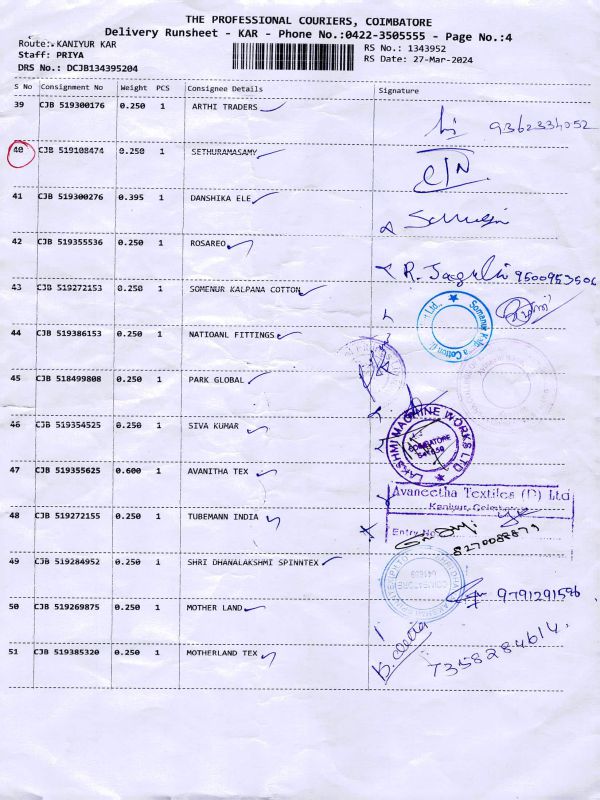 THE PROFESSIONAL COURIERS, COIMBATORE
Delivery Runsheet - KAR - Phone No.:0422-3505555 - Page No.:4
Route: KANIYUR KAR
RS No.: 1343952
Staff: PRIYA
RS Date: 27-Mar-2024
DRS No.: DCJB134395204
S No Consignment No Weight PCS Consignee Details Signature
39 CJB 519300176 0.250 1 ARTHI TRADERS
9362334052
40 CJB 519108474 0.250 1 SETHURAMASAMY
41 CJB 519300276 0.395 1 DANSHIKA ELE
42 CJB 519355536 0.250 1 ROSAREO
R. Jagulin 9500953506
43 CJB 519272153 0.250 1 SOMENUR KALPANA COTTON
44 CJB 519386153 0.250 1 NATIOANL FITTINGS
45 CJB 518499808 0.250 1 PARK GLOBAL
46 CJB 519354525 0.250 1 SIVA KUMAR
LAKSHMI MACHINE WORKS LTD
COIMBATORE
47 CJB 519355625 0.600 1 AVANITHA TEX
Avaneetha Textiles (P) Ltd
Entry No
48 CJB 519272155 0.250 1 TUBEMANN INDIA
8270088879
49 CJB 519284952 0.250 1 SHRI DHANALAKSHMI SPINNTEX
9791291596
50 CJB 519269875 0.250 1 MOTHER LAND
7358284614
51 CJB 519385320 0.250 1 MOTHERLAND TEX